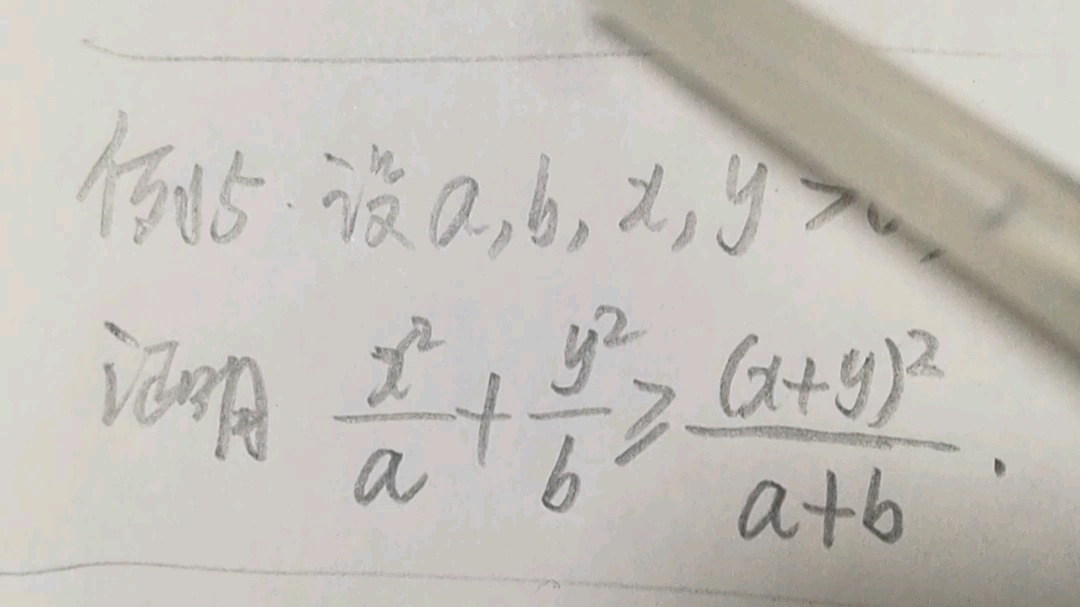 例5. 设 a, b, x, y >0,
证明 x²/a + y²/b ≥ (x+y)²/(a+b).